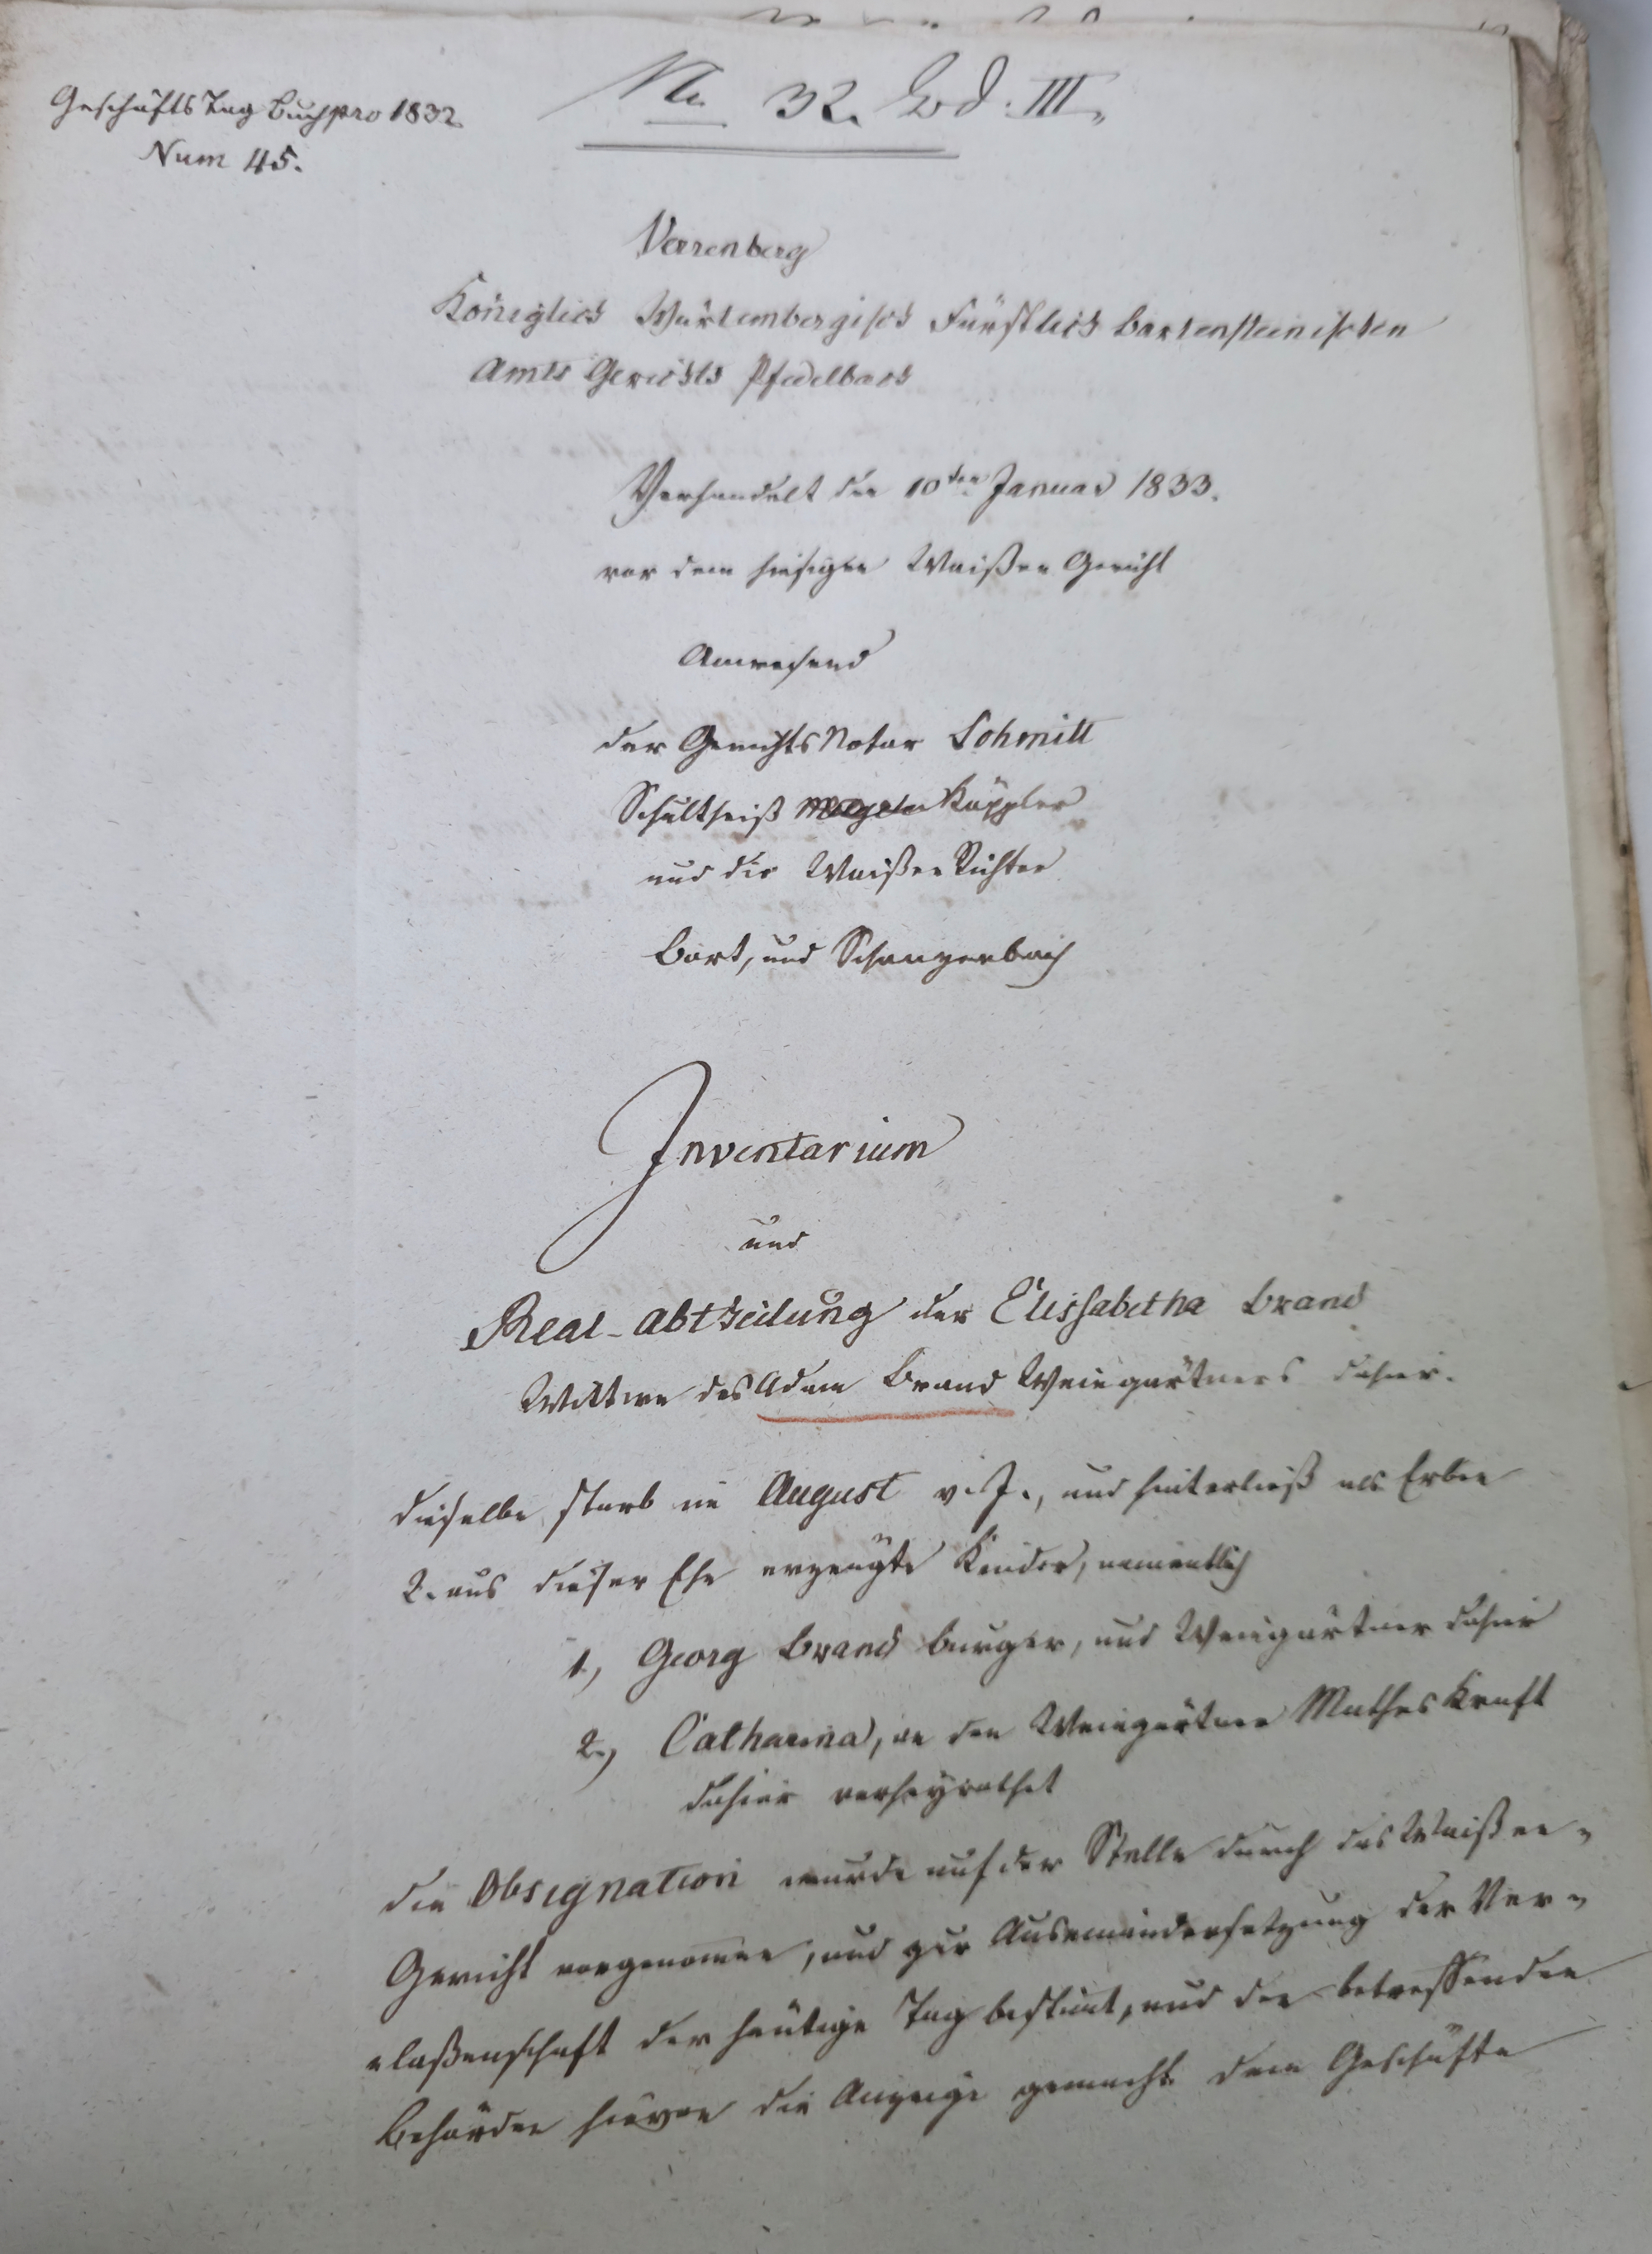 Geschäfts Tag Buch pro 1832
Num 45.
No. 32. Bd. III.
Verrenberg
Königlich Würtembergisch Fürstlich Bartensteinischen
Amts Gerichts Pfedelbach
Verhandelt den 10ten Januar 1833.
vor dem hiesigen Waißen Gericht
Anwesend
der Gerichts Notar Schmitt
Schultheiß Käppler
und die Waißen Richter
Bort, und Schanzenbach
Inventarium
und
Real-Abtheilung der Elissabetha Brand
Wittwe des Adam Brand Weingärtners dahier.
dieselbe starb im August v. J., und hinterließ als Erben
2. aus dieser Ehe erzeugte Kinder, namentlich
1., Georg Brand Burger, und Weingärtner dahier
2., Catharina, an den Weingärtner Mathes Kraft
dahier verheyrathet
die Obsignation wurde auf der Stelle durch das Waißen=
Gericht vorgenomen, und zur Auseinandersetzung der Ver=
=laßenschaft der heutige Tag bestimt, und den betreffenden
Behörden hievon die Anzeige gemacht. dem Geschäfte